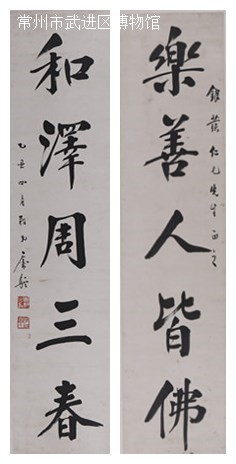 常州市武进区博物馆
樂善人皆佛
和澤周三春
仁兄先生
乙丑四月